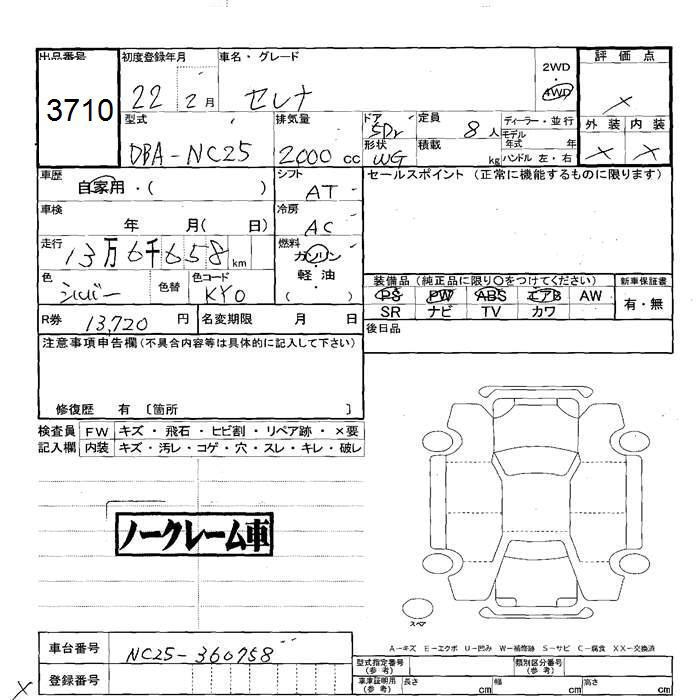 出品番号
3710
初度登録年月
22 2月
車名・グレード
セレナ
2WD
・
4WD
評価点
×
外装 内装
× ×
型式
DBA-NC25
排気量
2000 cc
ドア
5Dr
形状
WG
定員
8人
積載
kg
ディーラー・並行
モデル
年式 年
ハンドル 左・右
車歴
自家用・( )
シフト
AT
セールスポイント (正常に機能するものに限ります)
車検
年 月( 日)
冷房
AC
走行
13万6千658km
燃料
ガソリン
・
軽・油
( )
色
シルバー
色替
色コード
KY0
装備品 (純正品に限り〇をつけてください)
PS PW ABS エアB AW
SR ナビ TV カワ
新車保証書
有・無
R券
13,720 円
名変期限 月 日
後日品
注意事項申告欄(不具合内容等は具体的に記入して下さい)
修復歴 有 〔箇所 〕
検査員
記入欄
FW キズ・飛石・ヒビ割・リペア跡・×要
内装 キズ・汚レ・コゲ・穴・スレ・キレ・破レ
ノークレーム車
スペア
A-キズ E-エクボ U-凹み W-補修跡 S-サビ C-腐食 XX-交換済
車台番号
NC25-360758
登録番号
型式指定番号
(参考)
類別区分番号
(参考)
車庫証明用
(参考)
長さ cm 幅 cm 高さ cm
×